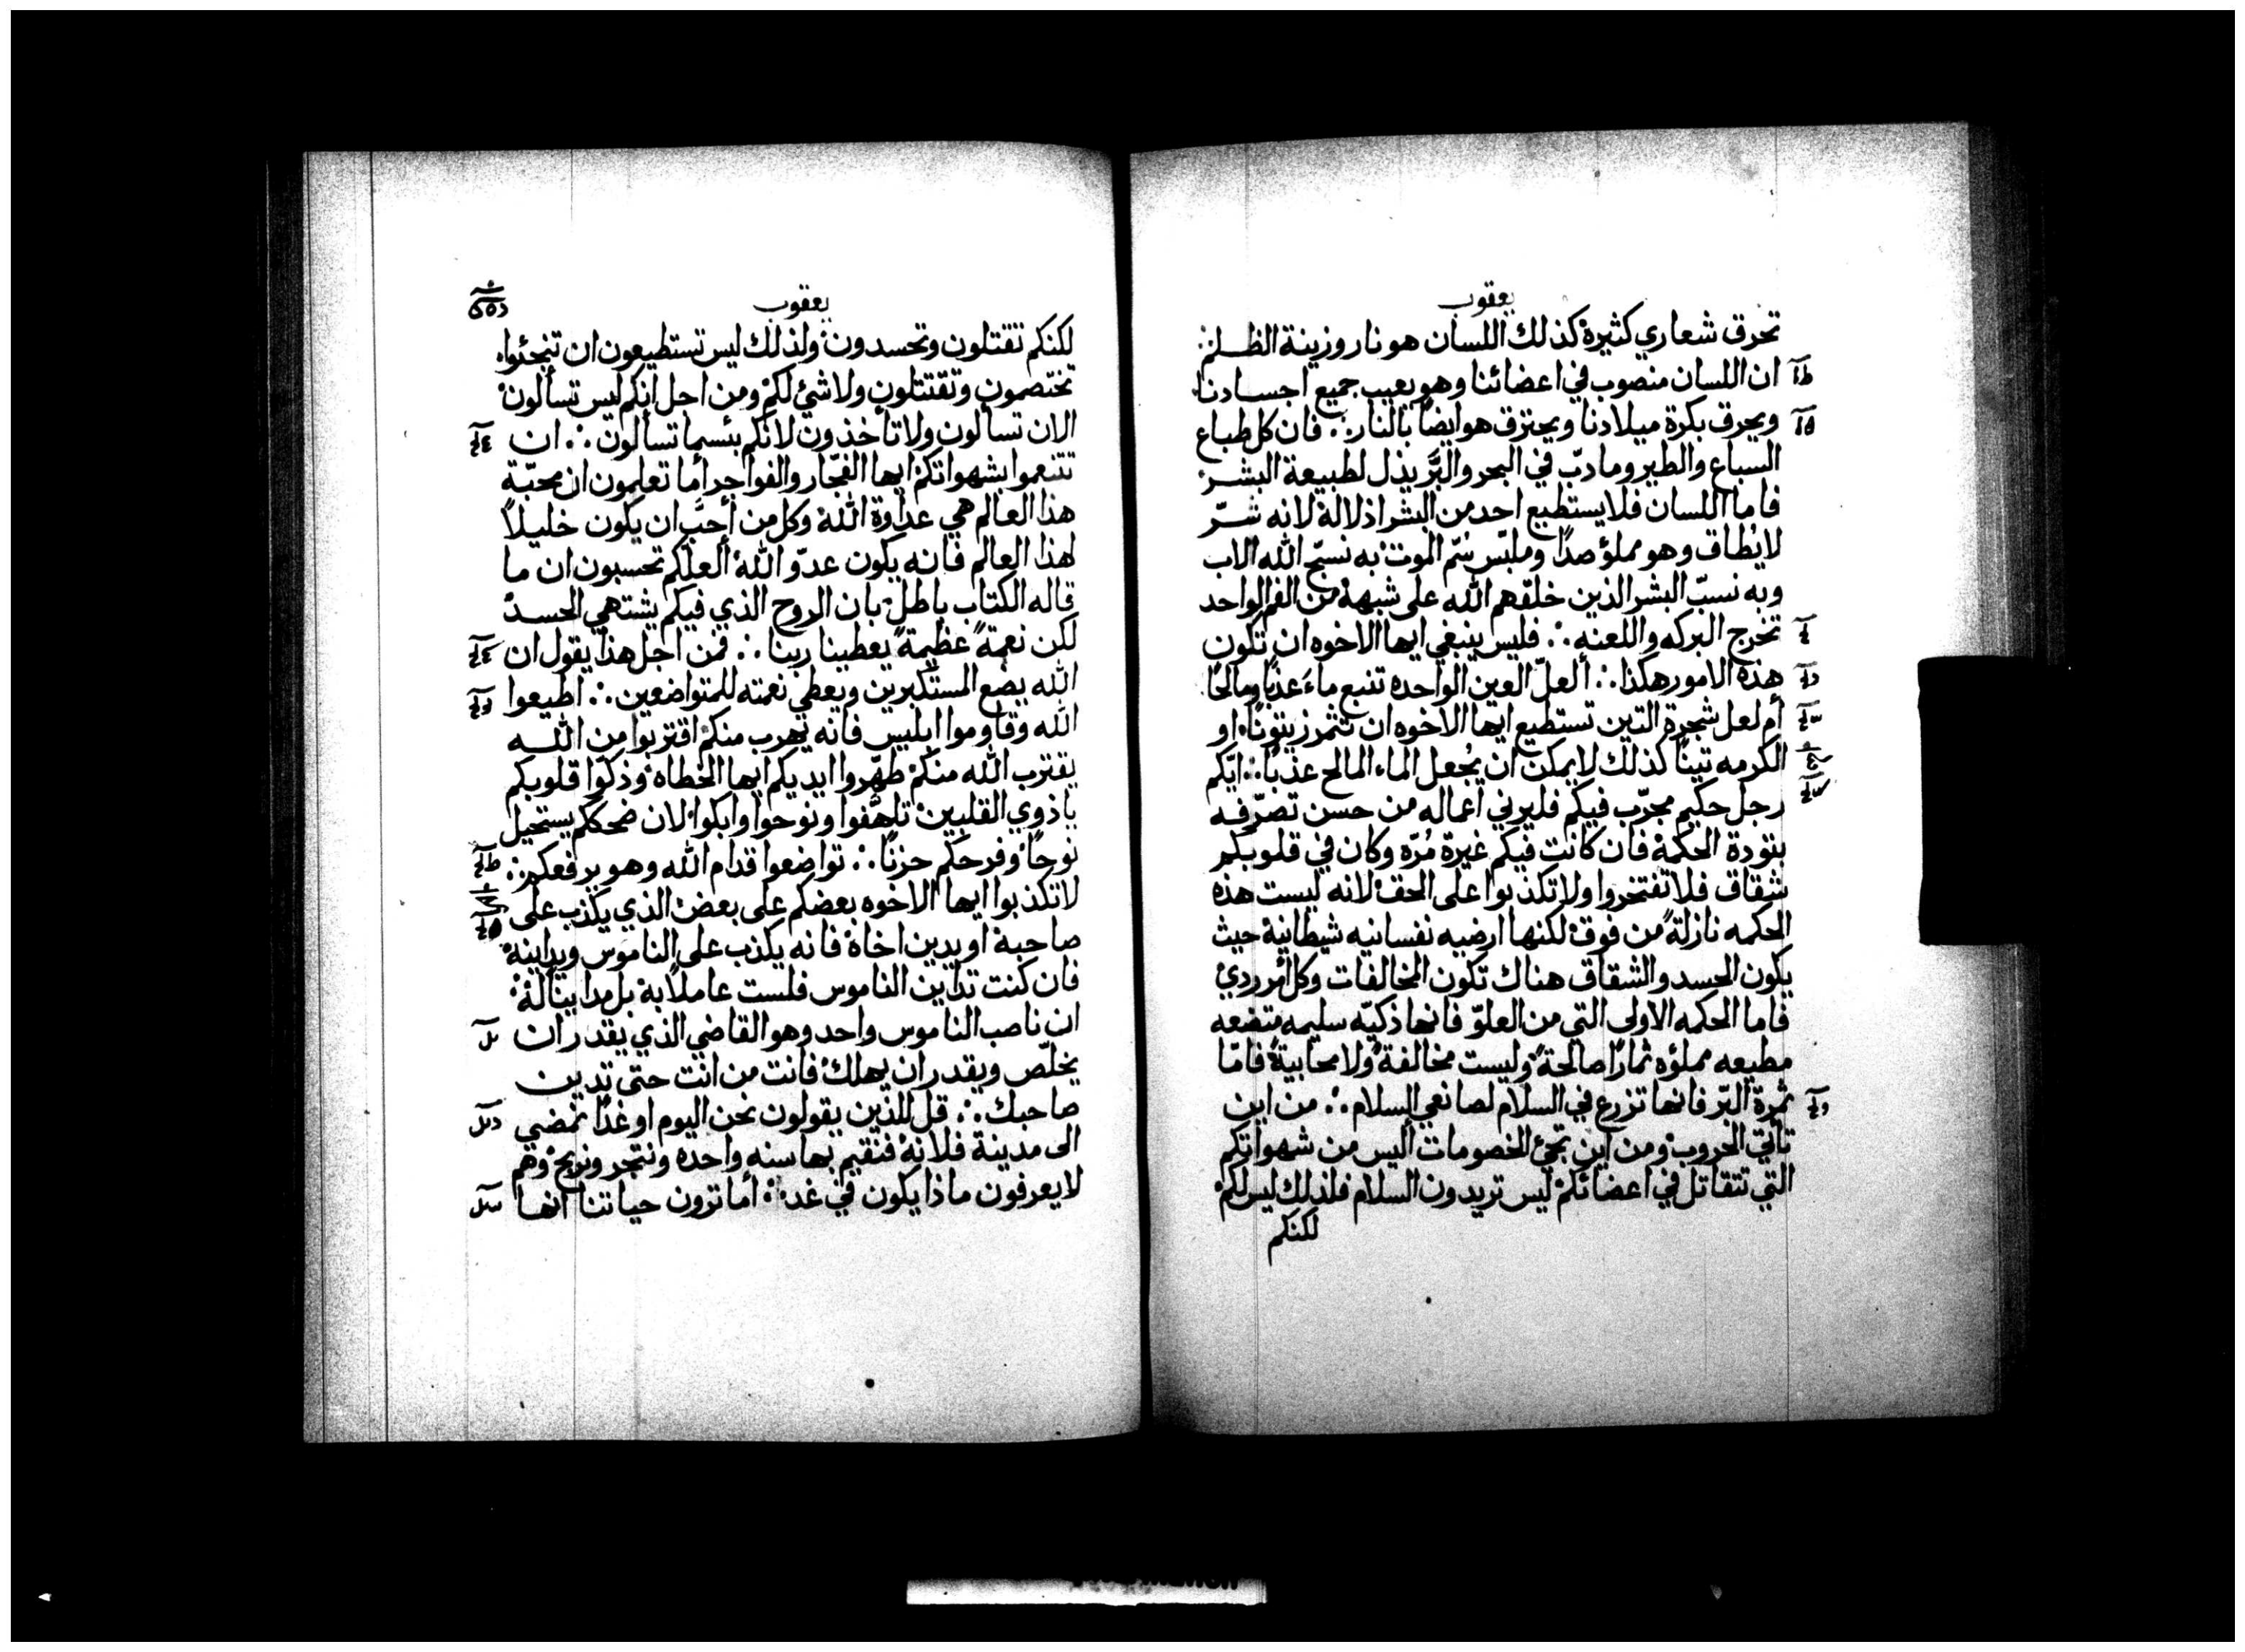 يعقوب
تحرق شعاري كثيرة كذلك اللسان هو نار وزينة الظلم
ان اللسان منصوب في اعضائنا وهو يعيب جميع اجسادنا
ويحرق بكرة ميلادنا ويحترق هو ايضًا بالنار ∴ فان كل طباع
السباع والطير وما دبّ في البحر والبَّر يذل لطبيعة البشر
فاما اللسان فلا يستطيع احد من البشر اذلاله لانه شرّ
لا يُطاق وهو مملؤ صدًا وملبّس سُمّ الموت به نسبّح الله الاب
وبه نسبّ البشر الذين خلقهم الله على شبهه من الفم الواحد
تخرج البركه واللعنه ∴ فليس ينبغي ايها الاخوه ان تكون
هذه الامور هكذا ∴ ألعلّ العين الواحده تنبع ماءً عذبًا ومالحًا
أم لعل شجرة التين تستطيع ايها الاخوه ان تثمر زيتونًا او
الكرمه تينًا كذلك لا يمكن ان يُجعل الماء المالح عذبًا ∴ ايّكم
رجل حكيم مجرّب فيكم فليرني اعماله من حسن تصرّفه
بتودة الحكمة فان كانت فيكم غيرة مُرّه وكان في قلوبكم
شقاق فلا تفتخروا ولا تكذبوا على الحق لانه ليست هذه
الحكمه نازلةً من فوق لكنها ارضيه نفسانيه شيطانية حيث
يكون الحسد والشقاق هناك تكون المخالفات وكل أمر ردئ
فاما الحكمه الاولى التي من العلوّ فانها ذكيّه سليمه متضعه
مطيعه مملؤه ثمارًا صالحةً وليست مخالفةً ولا محابيةً فامّا
ثمرة البرّ فانها تزرع في السلام لصانعي السلام ∴ من اين
تأتي الحروب ومن أين تجئ الخصومات أليس من شهواتكم
التي تتقاتل في اعضائكم ليس تريدون السلام فلذلك ليس لكم
لكنكم
يعقوب
لكنكم تقتلون وتحسدون ولذلك ليس تستطيعون ان تنجئوا
تختصمون وتقتتلون ولا شئ لكم ومن اجل انكم ليس تسألون
الان تسالون ولا تأخذون لانكم بئسما تسألون ∴ ان
تتنعموا بشهواتكم ايها الفجّار والفواجر أما تعلمون ان محبّة
هذا العالم هي عداوة الله وكل من أحبَّ ان يكون خليلًا
لهذا العالم فانه يكون عدوّ الله ألعلكم تحسبون ان ما
قاله الكتاب باطل بان الروح الذي فيكم يشتهي الحسد
لكن نعمةً عظيمةً يعطينا ربنا ∴ فمن اجل هذا يقول ان
الله يضع المستكبرين ويعطي نعمته للمتواضعين ∴ اطيعوا
الله وقاوموا ابليس فانه يهرب منكم اقتربوا من الله
يقترب الله منكم طهّروا ايديكم ايها الخطاه وذكّوا قلوبكم
يا ذوي القلبين تلهّفوا ونوحوا وابكوا لان ضحككم يستحيل
نوحًا وفرحكم حزنًا ∴ تواضعوا قدام الله وهو يرفعكم ∴
لا تكذبوا ايها الاخوه بعضكم على بعض الذي يكذب على
صاحبه او يدين اخاه فانه يكذب على الناموس ويداينه
فان كنت تداين الناموس فلست عاملًا به بل مداينًا له
ان ناصب الناموس واحد وهو القاضي الذي يقدر ان
يخلّص ويقدر ان يهلك فانت من انت حتى تدين
صاحبك ∴ قل للذين يقولون نحن اليوم او غدًا نمضي
الى مدينة فلانه فنقيم بها سنه واحده ونتجر ونربح وهم
لا يعرفون ماذا يكون في غد ∴ أما ترون حياتنا انها